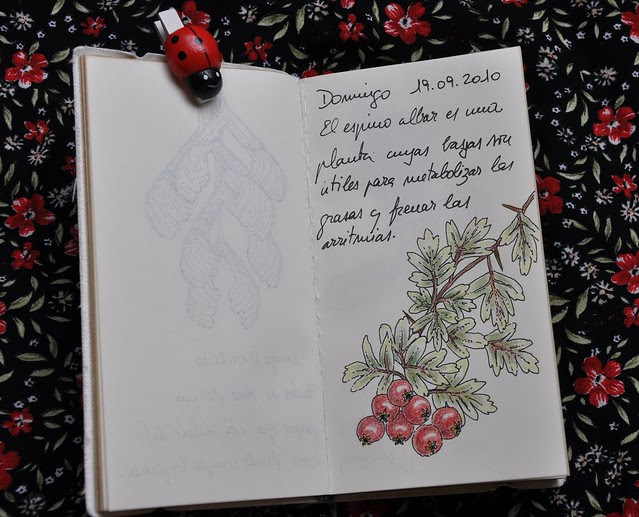 Domingo 19.09.2010
El espino albar es una
planta cuyas bayas son
útiles para metabolizar las
grasas y frenar las
arritmias.